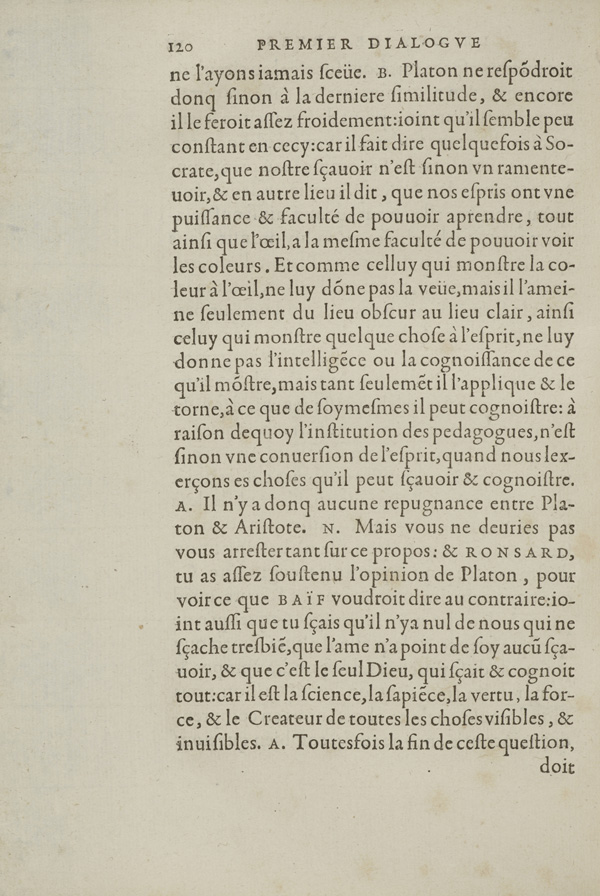 120 PREMIER DIALOGVE
ne l'ayons iamais ſceüe. B. Platon ne reſpõdroit
donq ſinon à la derniere ſimilitude, & encore
il le feroit aſſez froidement:ioint qu'il ſemble peu
conſtant en cecy:car il fait dire quelquefois à So-
crate, que noſtre ſçauoir n'eſt ſinon vn ramente-
uoir, & en autre lieu il dit, que nos eſpris ont vne
puiſſance & faculté de pouuoir aprendre, tout
ainſi que l'œil, a la meſme faculté de pouuoir voir
les coleurs. Et comme celluy qui monſtre la co-
leur à l'œil, ne luy dõne pas la veüe, mais il l'amei-
ne ſeulement du lieu obſcur au lieu clair, ainſi
celuy qui monſtre quelque choſe à l'eſprit, ne luy
donne pas l'intelligẽce ou la cognoiſſance de ce
qu'il mõſtre, mais tant ſeulemẽt il l'applique & le
torne, à ce que de ſoymeſmes il peut cognoiſtre: à
raiſon dequoy l'inſtitution des pedagogues, n'eſt
ſinon vne conuerſion de l'eſprit, quand nous lex-
erçons es choſes qu'il peut ſçauoir & cognoiſtre.
A. Il n'y a donq aucune repugnance entre Pla-
ton & Ariſtote. N. Mais vous ne deuries pas
vous arreſter tant ſur ce propos: & RONSARD,
tu as aſſez ſouſtenu l'opinion de Platon, pour
voir ce que BAÏF voudroit dire au contraire:io-
int auſſi que tu ſçais qu'il n'y a nul de nous qui ne
ſçache treſbiẽ, que l'ame n'a point de ſoy aucũ ſça-
uoir, & que c'eſt le ſeul Dieu, qui ſçait & cognoit
tout:car il eſt la ſcience, la ſapiẽce, la vertu, la for-
ce, & le Createur de toutes les choſes viſibles, &
inuiſibles. A. Toutesfois la fin de ceſte queſtion,
doit